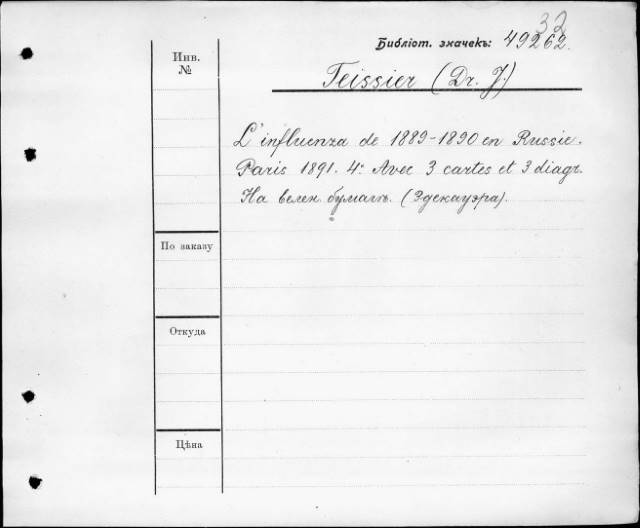 32
Библіот. значекъ: 49262.
Инв.
№
Teissier (Dr. J.)
L'influenza de 1889-1890 en Russie.
Paris 1891. 4° Avec 3 cartes et 3 diagr.
На велен. бумагѣ. (Эдекауэра).
По заказу
Откуда
Цѣна